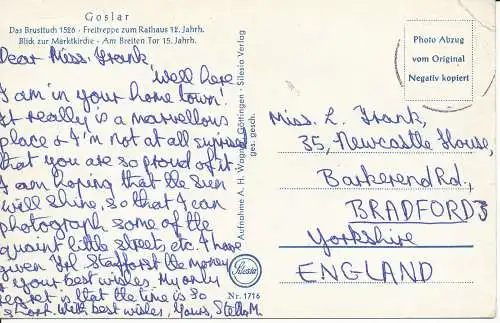 Goslar
Das Brusttuch 1526 · Freitreppe zum Rathaus 12. Jahrh.
Blick zur Marktkirche · Am Breiten Tor 15. Jahrh.
Dear Miss. Frank,
Well here
I am in your home town!
It really is a marvellous
place & I'm not at all suprised
that you are so proud of it.
I am hoping that the sun
will shine, so that I can
photograph some of the
quaint little streets, etc. I have
given Frl. the money
& your best wishes. My only
regret is that the time is so
short. With best wishes, Yours, Stella M.
Aufnahme A. H. Wagner, Göttingen - Silesia Verlag
ges. gesch.
Silesia
Nr. 1716
Photo Abzug
vom Original
Negativ kopiert
Miss. L. Frank,
35, Newcastle House,
Barkerend Rd.,
BRADFORD 3
Yorkshire
ENGLAND